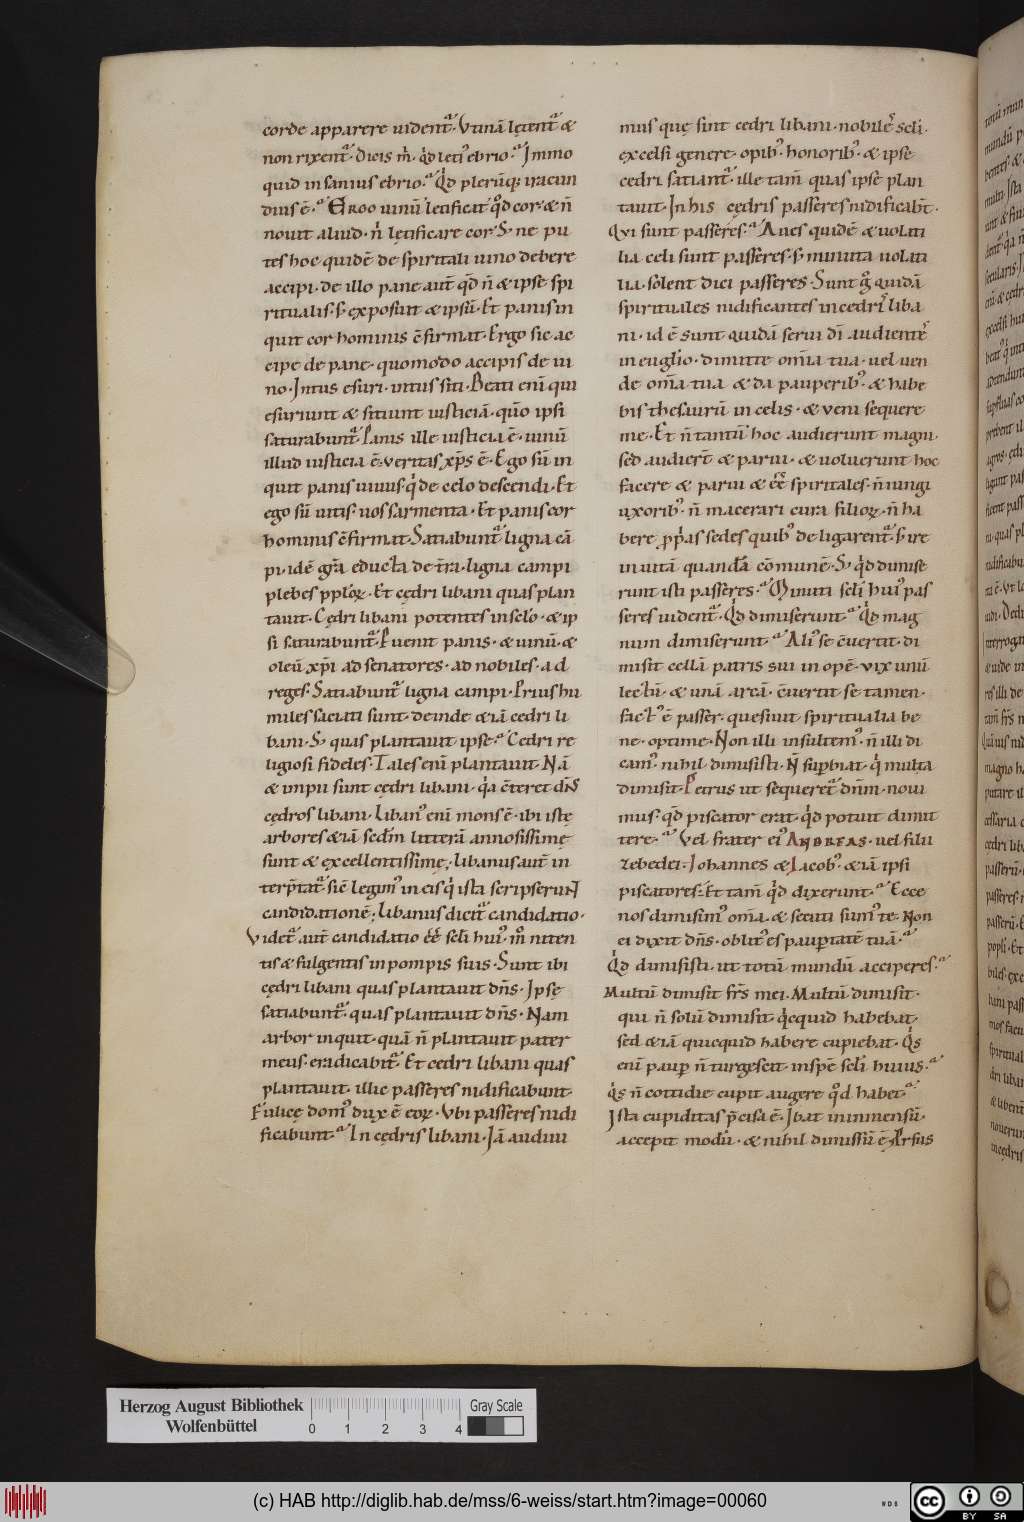 corde apparere uidentᷓ· Vtinā lętentᷓ &
non rixentᷓ· Dicis m̄· q̇d letiꝰ ebrio·ᷓ Immo
quid insanius ebrio·ᷓ Q̇d plerūq; iracun
dius ē·ᷓ ERGO uinū letificat qͦd cor· & n̄
nouit aliud· n̄ lętificare cor· S; ne pu
tes hoc quidē de spiritali uino debere
accipi· de illo pane aut̄ q̇d n̄ & ipse spi
ritualis· s; exposuit & ipsū· Et panis in
quit cor hominis c̄firmat· Ergo sic ac
cipe de pane· quomodo accipis de ui
no· Intus esuri· intus siti· Beati eni qui
esuriunt & sitiunt iusticiā· quō ipsi
saturabuntᷓ· Panis ille iusticia ē· uinū
illud iusticia ē· ueritas xp̄s ē· Ego sū in
quit panis uiuus· q̇ de celo descendi· Et
ego sū uitis· uos sarmenta· Et panis cor
hominis c̄firmat· Satiabuntᷓ ligna cā
pi· idē gr̄a educta de t̄ra· ligna campi
plebes pploꝝ· Et cędri libani quas plan
tauit· Cędri libani potentes in sc̄lo· & ip
si saturabuntᷓ· Puenit panis· & uinū· &
oleū xp̄i ad senatores· ad nobiles· ad
reges· Satiabuntᷓ ligna campi· Prius hu
miles saciati sunt· deinde & iā cedri li
bani· S; quas plantauit ipse·ᷓ Cedri re
ligiosi fideles· Tales eni plantauit· Nā
& impii sunt cędri libani· q̇a c̄teret dn̄s
cędros libani· Libanꝰ eni mons ē· ibi istę
arbores & iā sedm litterā annosissimę
sunt & excellentissimę; libanus aut̄ in
terp̄tatᷓ· sic̄ legimꝰ in eis q̇ ista scripserunt
candidationē; Libanus dicitᷓ candidatio·
Videtᷓ aut̄ candidatio ēē scl̄i huiꝰ m̊ niten
tis & fulgentis in pompis suis· Sunt ibi
cędri libani quas plantauit dn̄s· Ipsę
satiabuntᷓ· quas plantauit dn̄s· Nam
arbor inquit· quā n̄ plantauit pater
meus· eradicabitᷓ· Et cedri libani quas
plantauit· illic passeres nidificabunt·
Fulicę domꝰ dux ē eoꝝ· Vbi passeres nidi
ficabunt·ᷓ In cędris libani· Iā audiui
mus quę sint cedri libani· nobiles scl̄i·
excelsi genere· opibꝰ· honoribꝰ· & ipse
cedri satiantᷓ· ille tam̄ quas ipse plan
tauit· In his cędris passeres nidificabt̄·
Qui sunt passeres·ᷓ Aues quidē & uolati
lia celi sunt passeres· s; minuta uolati
lia· solent dici passeres· Sunt gͦ quidā
spirituales nidificantes in cedris liba
ni· id ē sunt quidā serui dī audientes
in euglio· dimitte omīa tua· uel uen
de omīa tua & da pauperibꝰ· & habe
bis thesaurū in celis· & ueni sequere
me· Et n̄ tantū hoc audierunt magni·
sed audiert̄ & parui· & uoluerunt hoc
facere & parui & ēē spiritales· n̄ iungi
uxoribꝰ· n̄ macerari cura filioꝝ· n̄ ha
bere pp̄as sedes quibꝰ deligarentᷓ· s; ire
in uitā quandā cōmunē· S; q̇d dimise
runt isti passeres·ᷓ Minuti scl̄i huiꝰ pas
seres uidentᷓ· Q̇d dimiserunt·ᷓ Q̇d mag
num dimiserunt·ᷓ Aliꝰ se c̄uertit· di
misit cellā patris sui inopē· uix unū
lectū· & unā arcā· c̄uertit se tamen·
factꝰ ē passer· quesiuit spiritualia be
ne· optime· Non illi insultemꝰ· n̄ illi di
camꝰ nihil dimisisti· N̄ supbiat· q̇ multa
dimisit· Petrus ut sequeretᷓ dn̄m· noui
mus· q̇d piscator erat· q̇d potuit dimit
tere·ᷓ Vel frater eiꝰ ANDREAS· uel filii
zebedei· Iohannes & Iacobꝰ· & iā ipsi
piscatores· Et tam̄ q̇d dixerunt·ᷓ Ecce
nos dimisimꝰ omīa· & secuti sumꝰ te· Non
ei dixit dn̄s· oblitꝰ es paupertatē tuā·ᷓ
Q̇d dimisisti· ut totū mundū acciperes·ᷓ
Multū dimisit frs̄ mei· Multū dimisit·
qui n̄ solū dimisit· q̇cquid habebat·
sed & iā quicquid habere cupiebat· Q̇s
eni paup n̄ turgescit· in spē scl̄i huius·ᷓ
Q̇s n̄ cottidie cupit augere qͦd habet·ᷓ
Ista cupiditas p̄cisa ē· Ibat in inmensū·
accepit modū· & nihil dimissū ē· Prsus
Herzog August Bibliothek
Wolfenbüttel
0 1 2 3 4
Gray Scale
(c) HAB http://diglib.hab.de/mss/6-weiss/start.htm?image=00060
cc BY SA